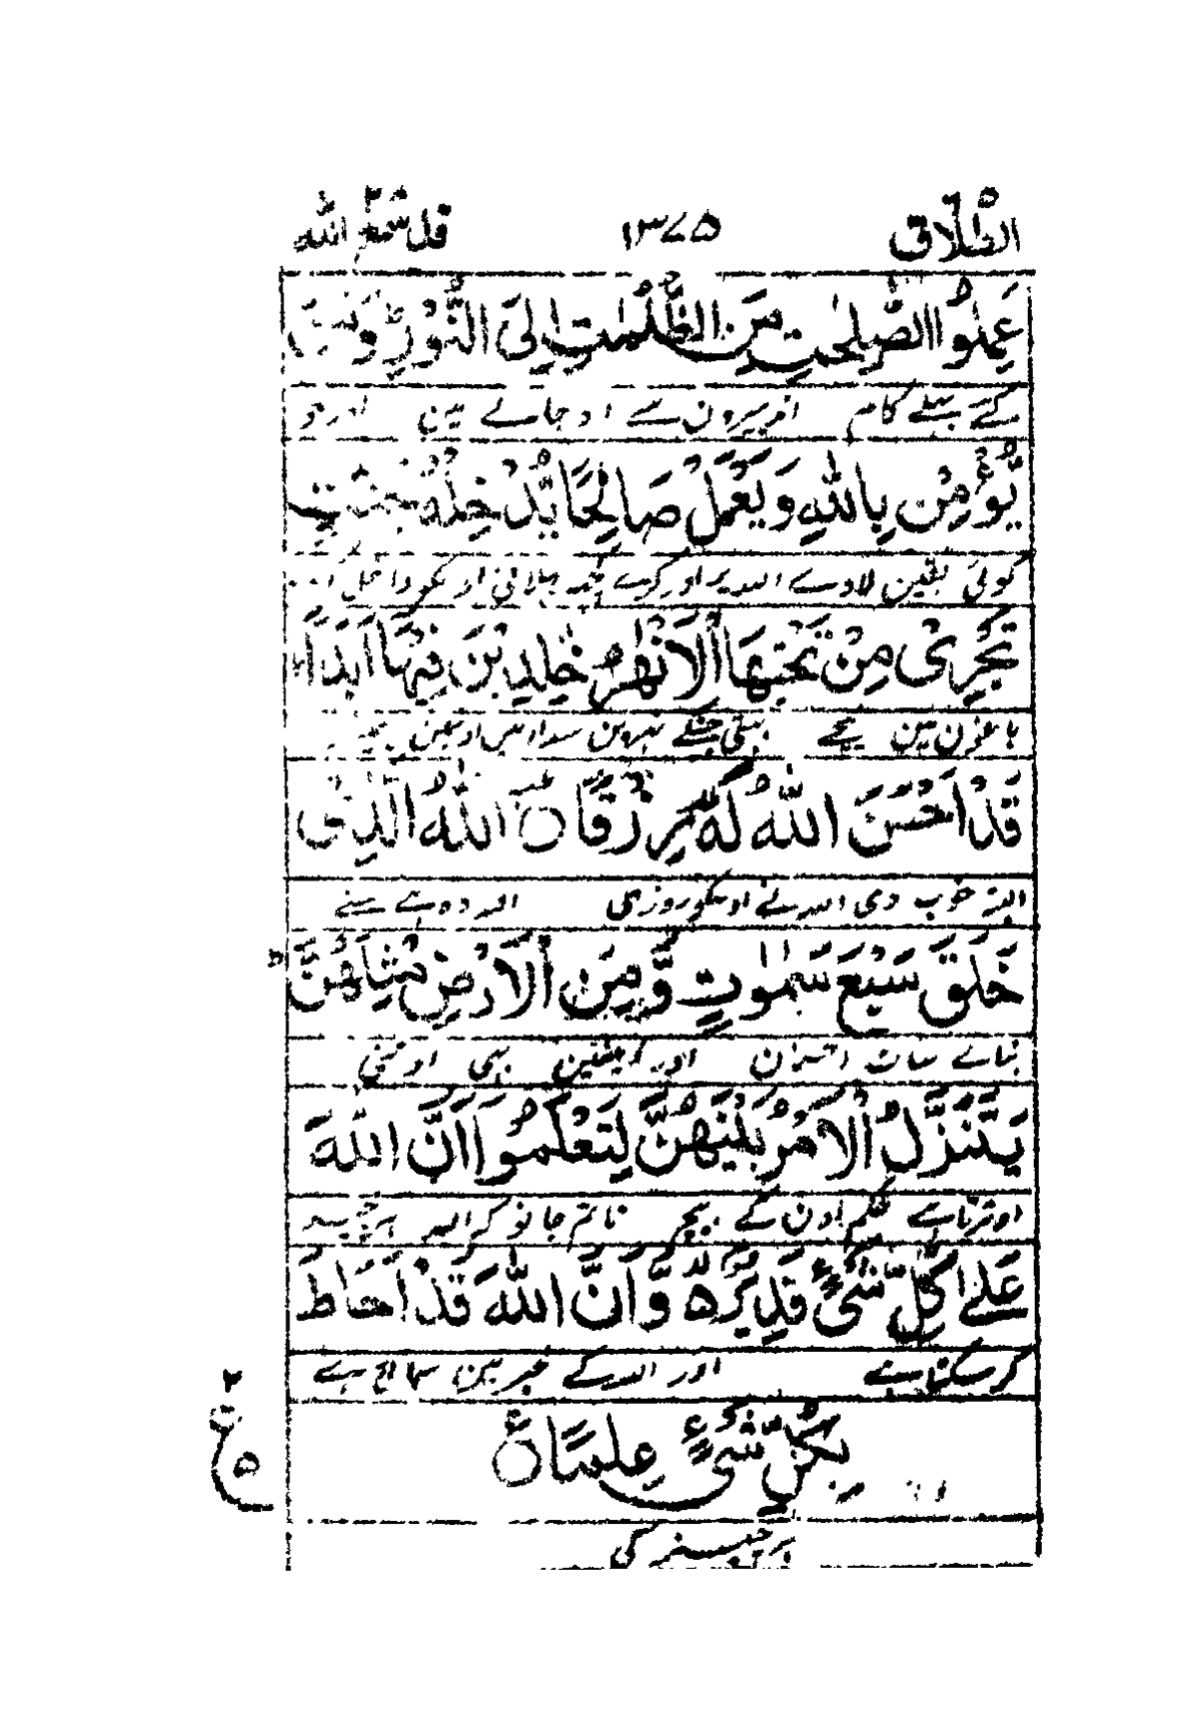 الطلاق ۶۵ ۱۳۷۵ قد سمع الله ۲۸
عَمِلُوا الصّٰلِحٰتِ مِنَ الظُّلُمٰتِ اِلَى النُّوْرِ ؕ وَمَنْ
کئے بہلے کام اندہیرون سے اوجالے مین اور جو
یُّؤْمِنْۢ بِاللّٰهِ وَیَعْمَلْ صَالِحًا یُّدْخِلْهُ جَنّٰتٍ
کوئی یقین لادے اللہ پر اور کرے کچہ بہلائی اوسکو داخل
تَجْرِیْ مِنْ تَحْتِهَا الْاَنْهٰرُ خٰلِدِیْنَ فِیْهَاۤ اَبَدًا ؕ
باغون مین نیچے بہتی جنکے نہرین سدا رہین اونمین
قَدْ اَحْسَنَ اللّٰهُ لَهٗ رِزْقًا ○ اَللّٰهُ الَّذِیْ
البتہ خوب دی اللہ نے اوسکو روزی اللہ وہ ہے جسنے
خَلَقَ سَبْعَ سَمٰوٰتٍ وَّمِنَ الْاَرْضِ مِثْلَهُنَّ ؕ
بنائے سات آسمان اور زمینین بہی اوتنی
یَتَنَزَّلُ الْاَمْرُ بَیْنَهُنَّ لِتَعْلَمُوْۤا اَنَّ اللّٰهَ
اوترتا ہے حکم اون کے بیچ تا تم جانو کہ اللہ ہر چیز
عَلٰى كُلِّ شَیْءٍ قَدِیْرٌ ۙ۬ وَّاَنَّ اللّٰهَ قَدْ اَحَاطَ
کر سکتا ہے اور اللہ کے خبر مین سمائی ہے
بِكُلِّ شَیْءٍ عِلْمًا ○
۲ ع ۵
ہر چیز کی